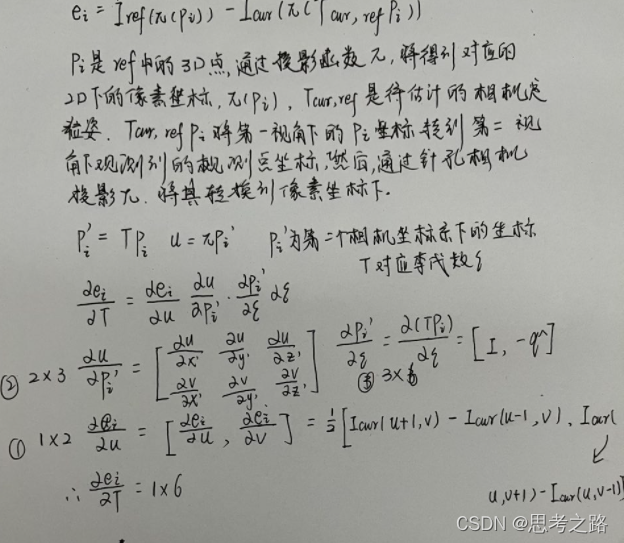 ei = Iref(π(Pi)) - Icur(π(Tcur,ref Pi))
Pi是ref中的3D点,通过投影函数π,将得到对应的
2D下的像素坐标,π(Pi),Tcur,ref是待估计的相机
位姿.Tcur,ref Pi将第一视角下的Pi坐标转到第二视
角下观测到的观测点坐标,然后,通过针孔相机
投影π.将其转换到像素坐标下.
Pi' = TPi u = πPi' Pi'为第二个相机坐标系下的坐标
T对应李代数ξ
∂ei/∂T = ∂ei/∂u ∂u/∂Pi' · ∂Pi'/∂ξ ∂ξ
② 2×3 ∂u/∂Pi' = [∂u/∂x' ∂u/∂y' ∂u/∂z' ∂v/∂x' ∂v/∂y' ∂v/∂z'] ∂Pi'/∂ξ = ∂(TPi)/∂ξ = [I, -q^]
③ 3×6
① 1×2 ∂ei/∂u = [∂ei/∂u, ∂ei/∂v] = ½[Icur(u+1,v) - Icur(u-1,v), Icur(
∴ ∂ei/∂T = 1×6
u,v+1) - Icur(u,v-1)]
CSDN @思考之路